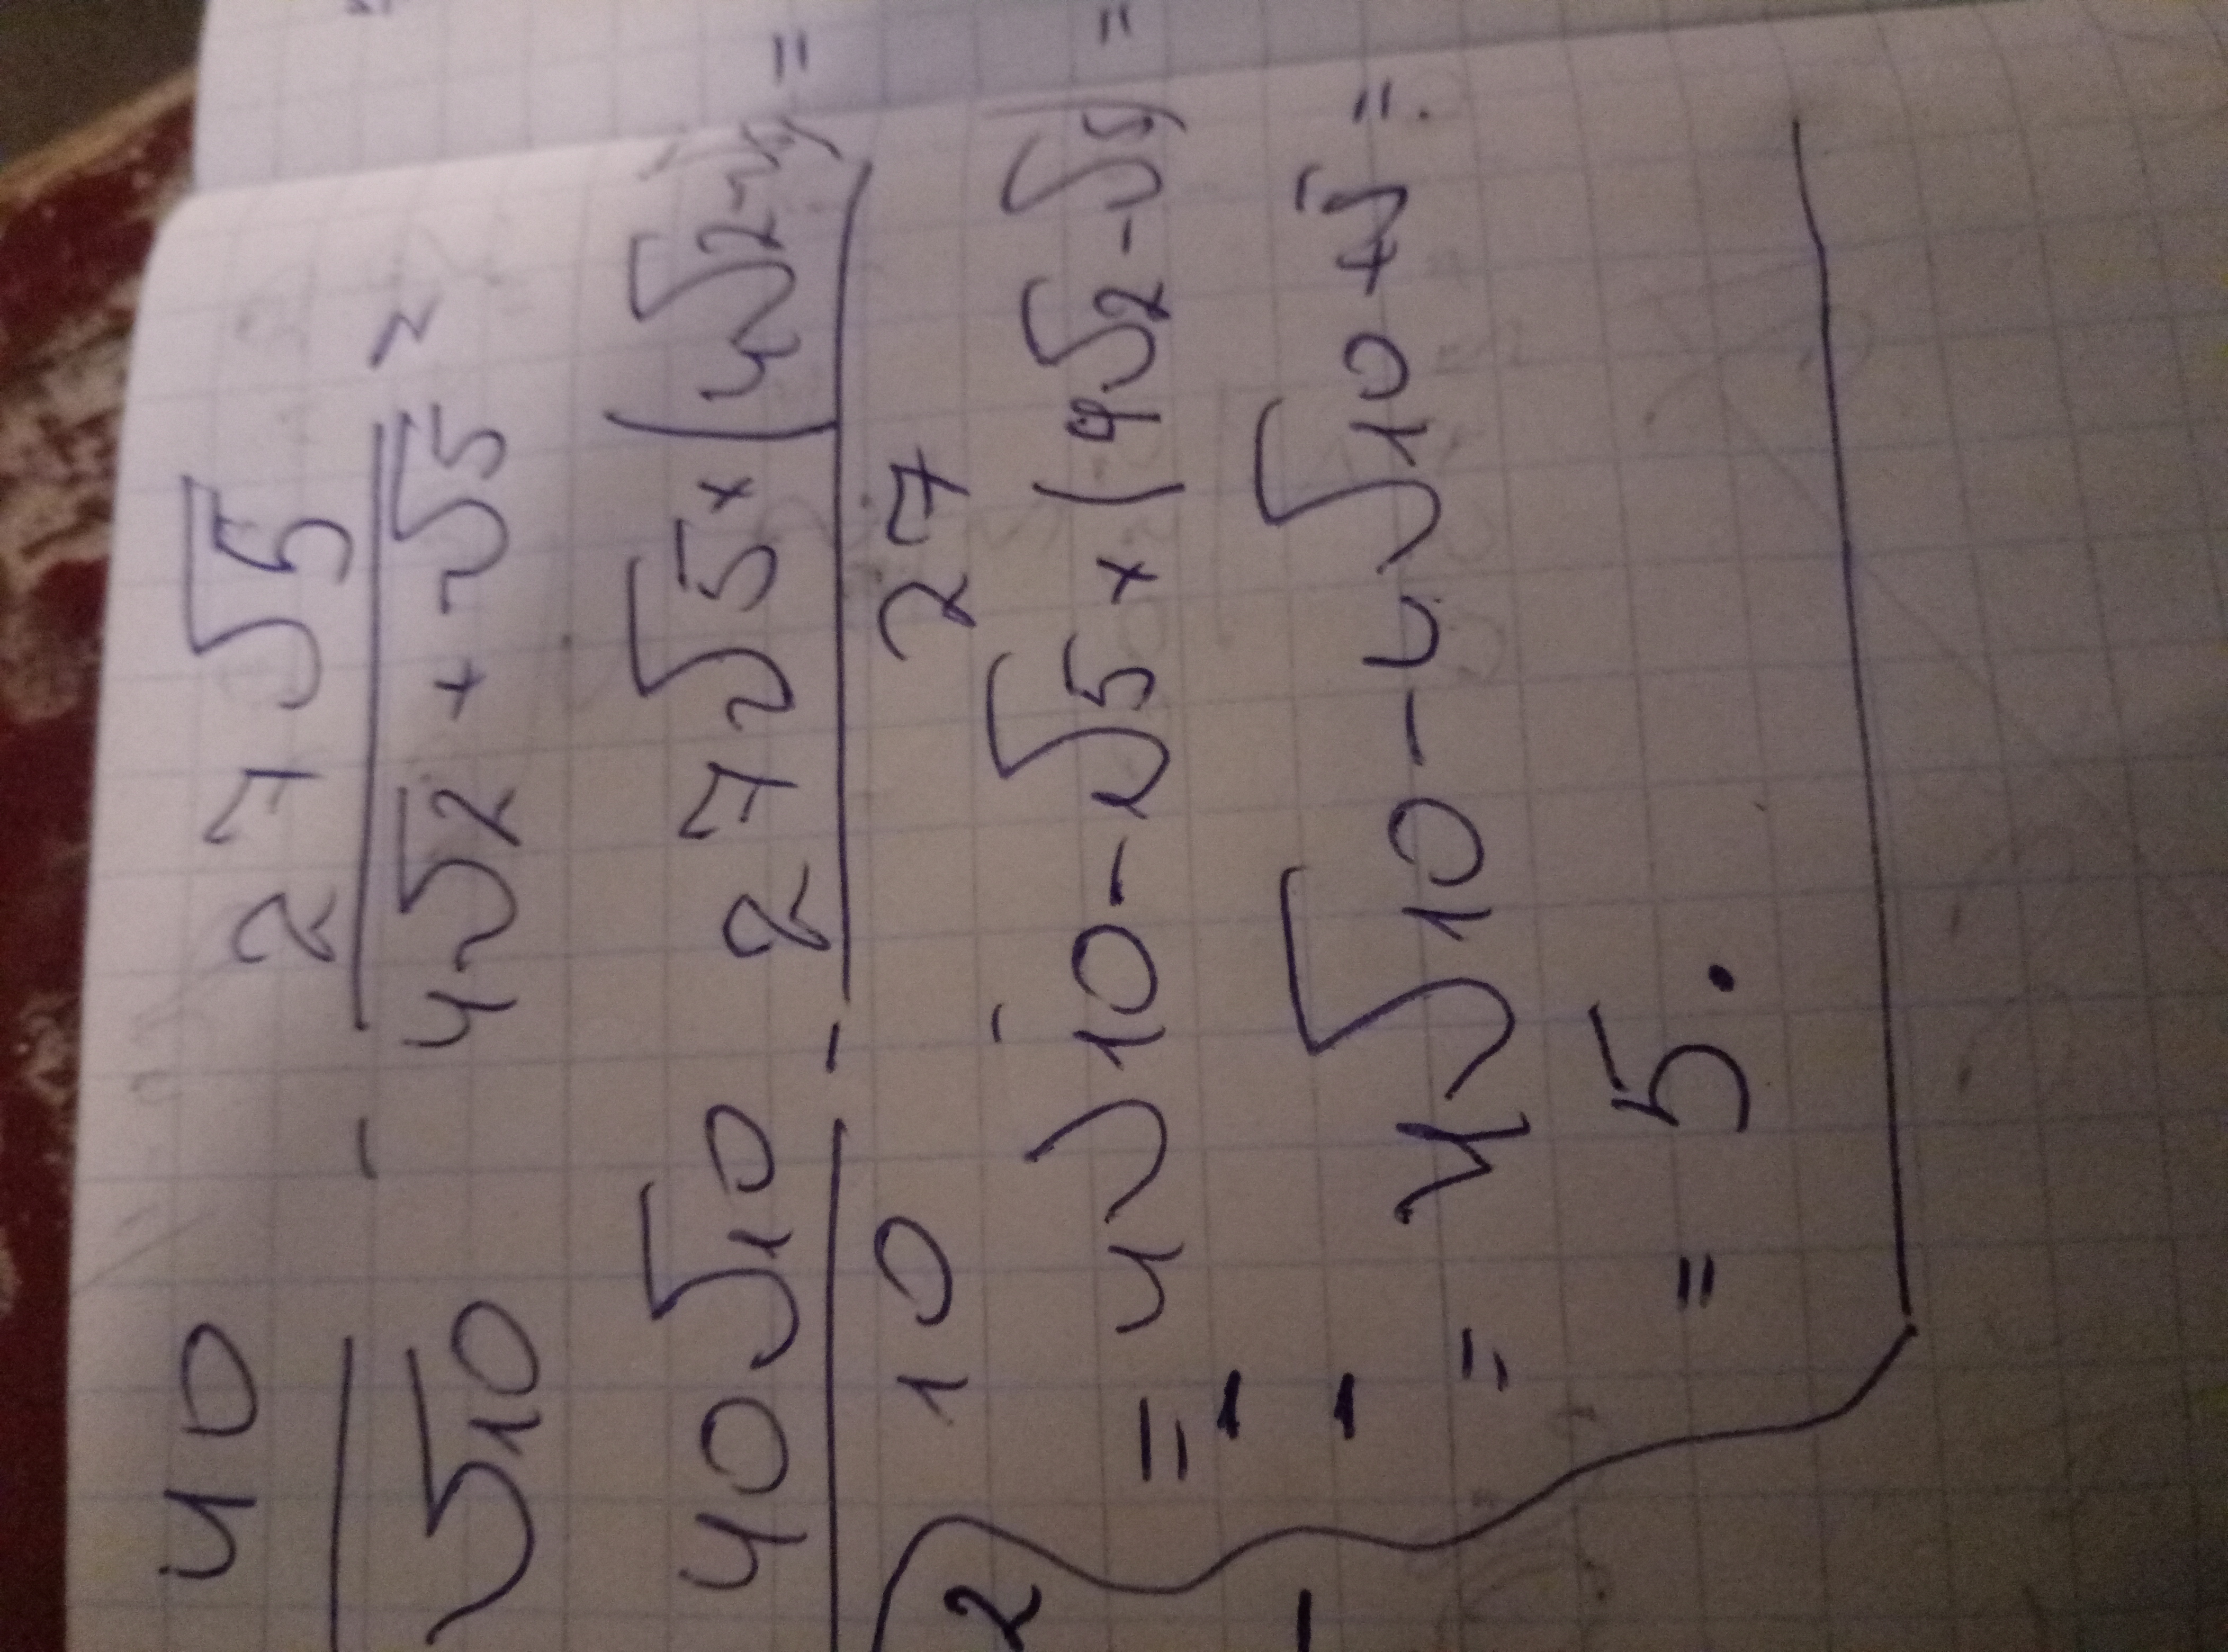 40/√10 - 27√5/4√2+√5 =
40√10/10 - 27√5×(4√2-√5)/27 =
= 4√10-√5×(4√2-√5) =
= 4√10-4√10+5=
= 5.